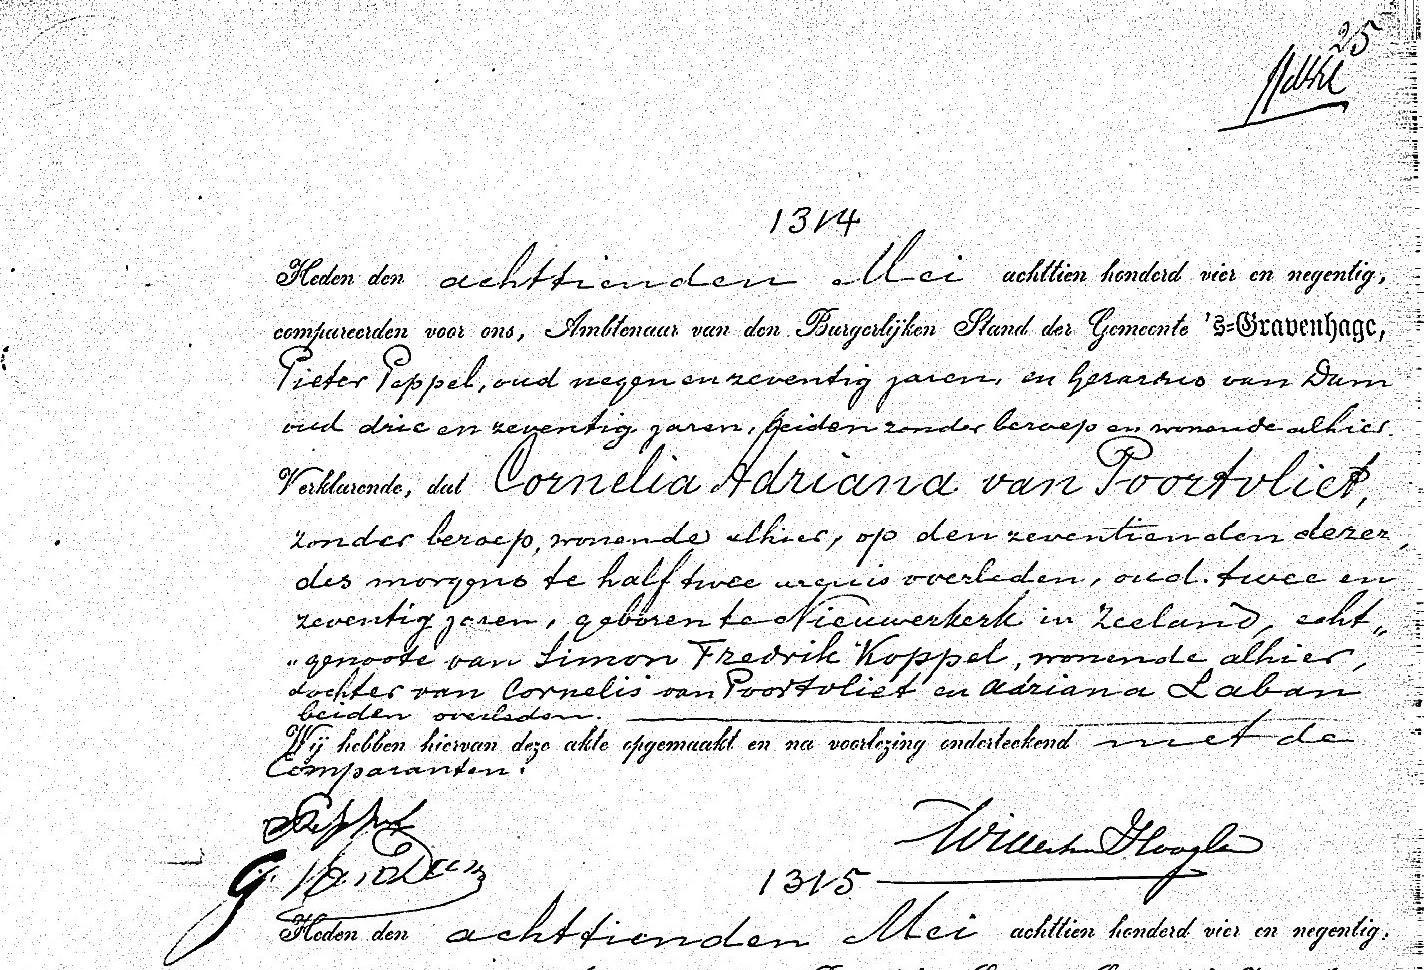 25
1314
Heden den achttienden Mei achttien honderd vier en negentig,
compareerden voor ons, Ambtenaar van den Burgerlijken Stand der Gemeente 's-Gravenhage,
Pieter Peppel, oud negen en zeventig jaren, en Gerardus van Dam
oud drie en zeventig jaren, beiden zonder beroep en wonende alhier.
Verklarende, dat Cornelia Adriana van Poortvliet,
zonder beroep, wonende alhier, op den zeventienden dezer,
des morgens te half twee ure is overleden, oud twee en
zeventig jaren, geboren te Nieuwerkerk in Zeeland, echt„
„genoote van Simon Fredrik Koppel, wonende alhier,
dochter van Cornelis van Poortvliet en Adriana Laban
beiden overleden.
Wij hebben hiervan deze akte opgemaakt en na voorlezing onderteekend met de
Comparanten.
Peppel
G. van Dam
1315
Heden den achttienden Mei achttien honderd vier en negentig,